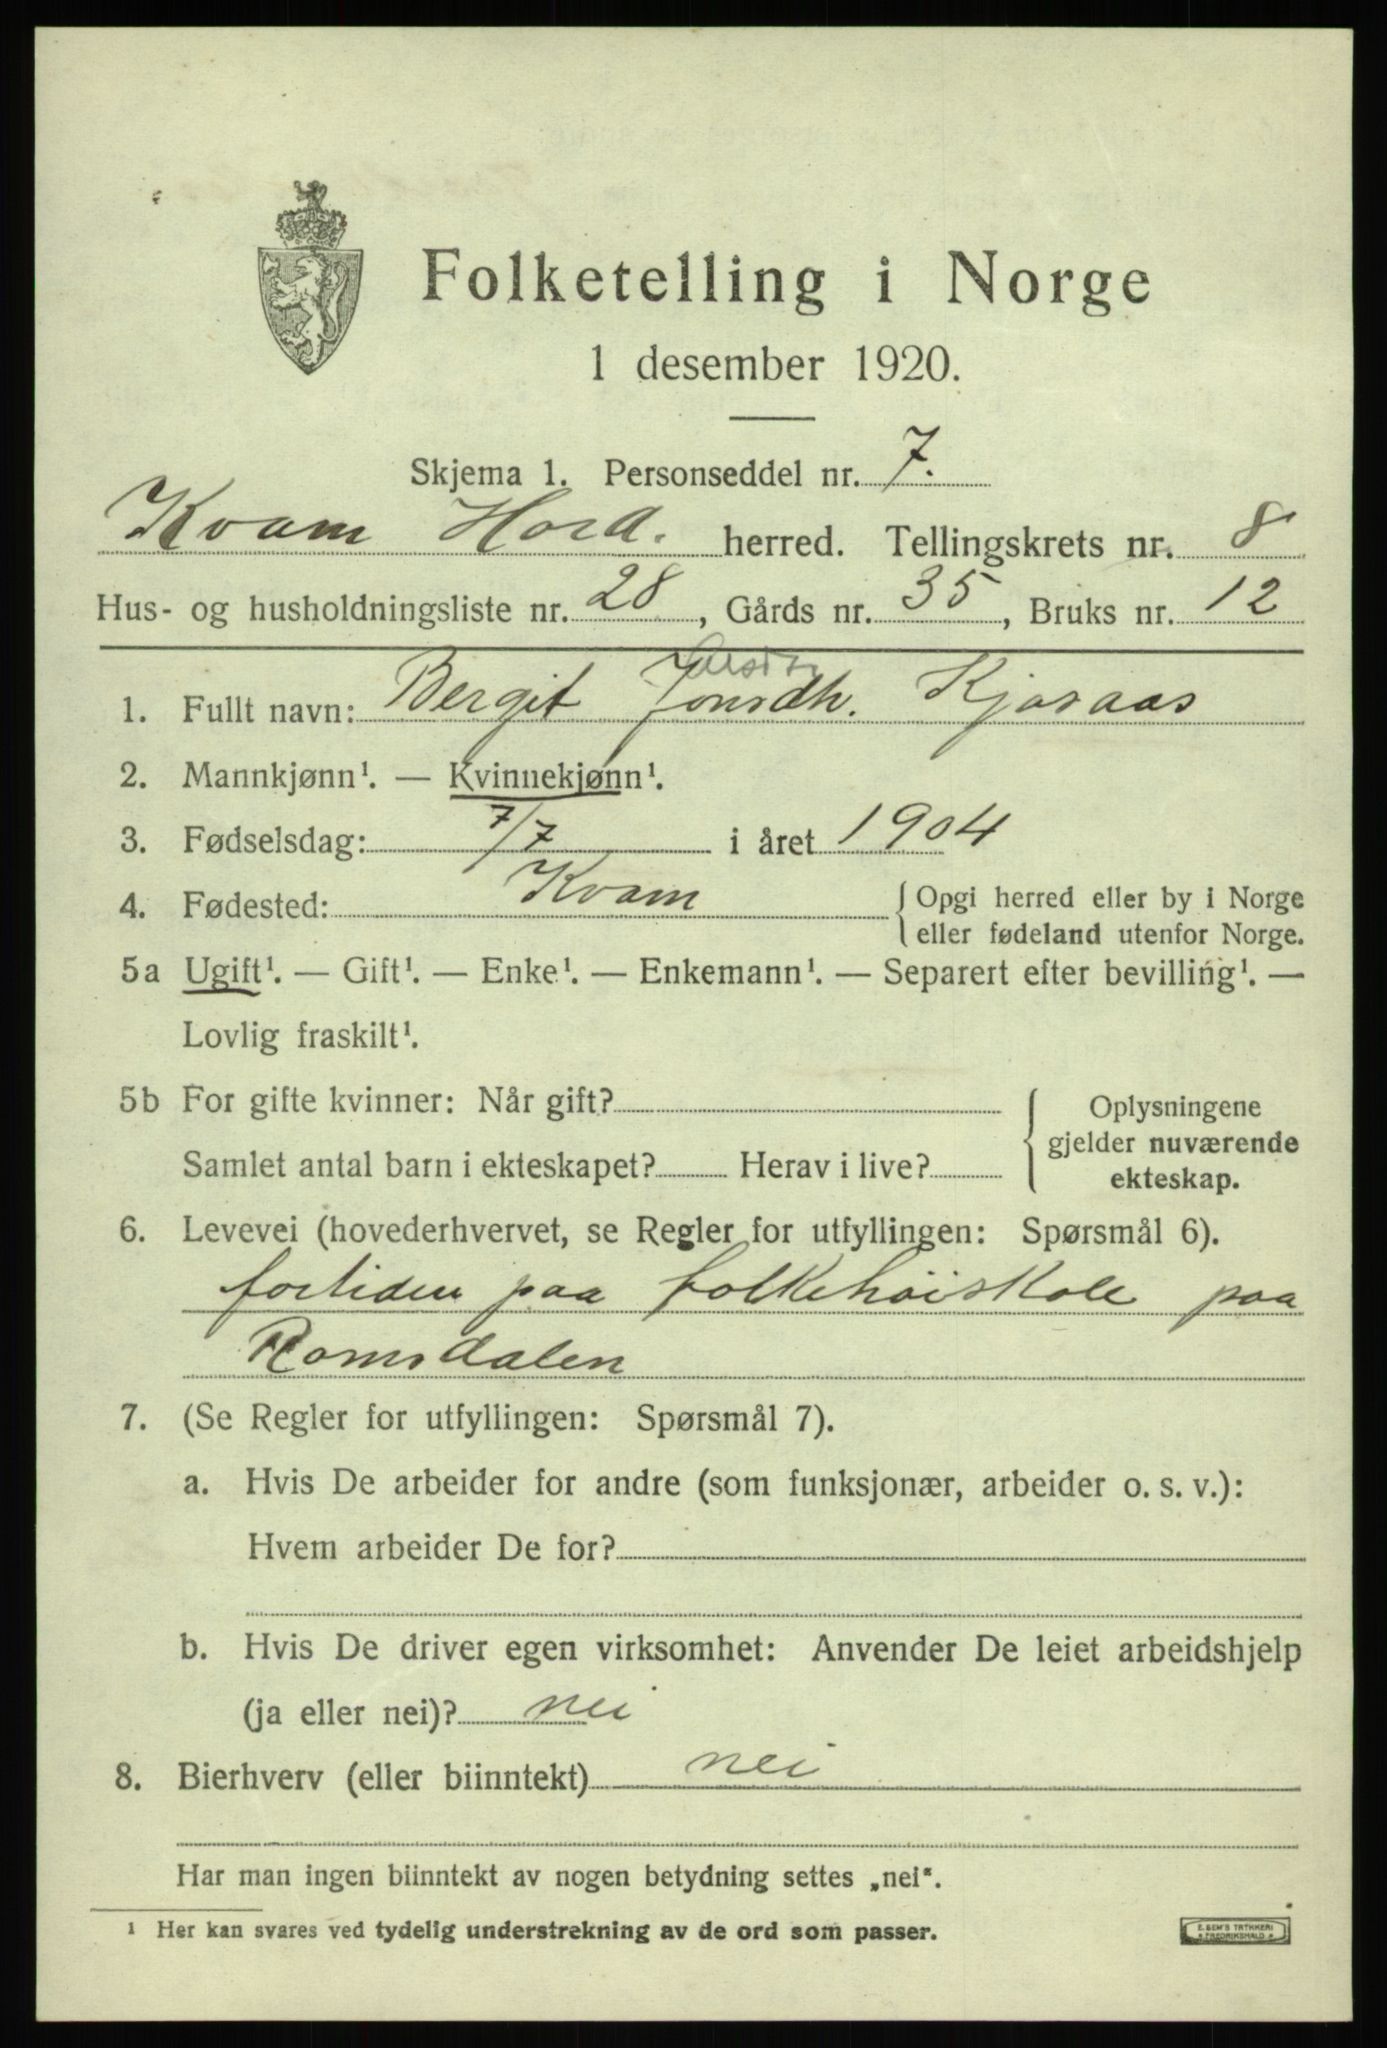 Folketelling i Norge
1 desember 1920.
Skjema 1. Personseddel nr. 7.
Kvam Hord. herred. Tellingskrets nr. 8
Hus- og husholdningsliste nr. 28, Gårds nr. 35, Bruks nr. 12
1. Fullt navn: Bergit Jonsdh. Kjosaas
2. Mannkjønn¹. — Kvinnekjønn¹.
3. Fødselsdag: 7/7 i året 1904
4. Fødested: Kvam { Opgi herred eller by i Norge
eller fødeland utenfor Norge.
5a Ugift¹. — Gift¹. — Enke¹. — Enkemann¹. — Separert efter bevilling¹. —
Lovlig fraskilt¹.
5b For gifte kvinner: Når gift?
Samlet antal barn i ekteskapet? Herav i live?
Oplysningene
gjelder nuværende
ekteskap.
6. Levevei (hovederhvervet, se Regler for utfyllingen: Spørsmål 6).
fortiden paa folkehøiskole paa
Romsdalen
7. (Se Regler for utfyllingen: Spørsmål 7).
a. Hvis De arbeider for andre (som funksjonær, arbeider o. s. v.):
Hvem arbeider De for?
b. Hvis De driver egen virksomhet: Anvender De leiet arbeidshjelp
(ja eller nei)? nei
8. Bierhverv (eller biinntekt) nei
Har man ingen biinntekt av nogen betydning settes „nei".
¹ Her kan svares ved tydelig understrekning av de ord som passer.
E. SEM'S TRYKKERI
FREDRIKSHALD